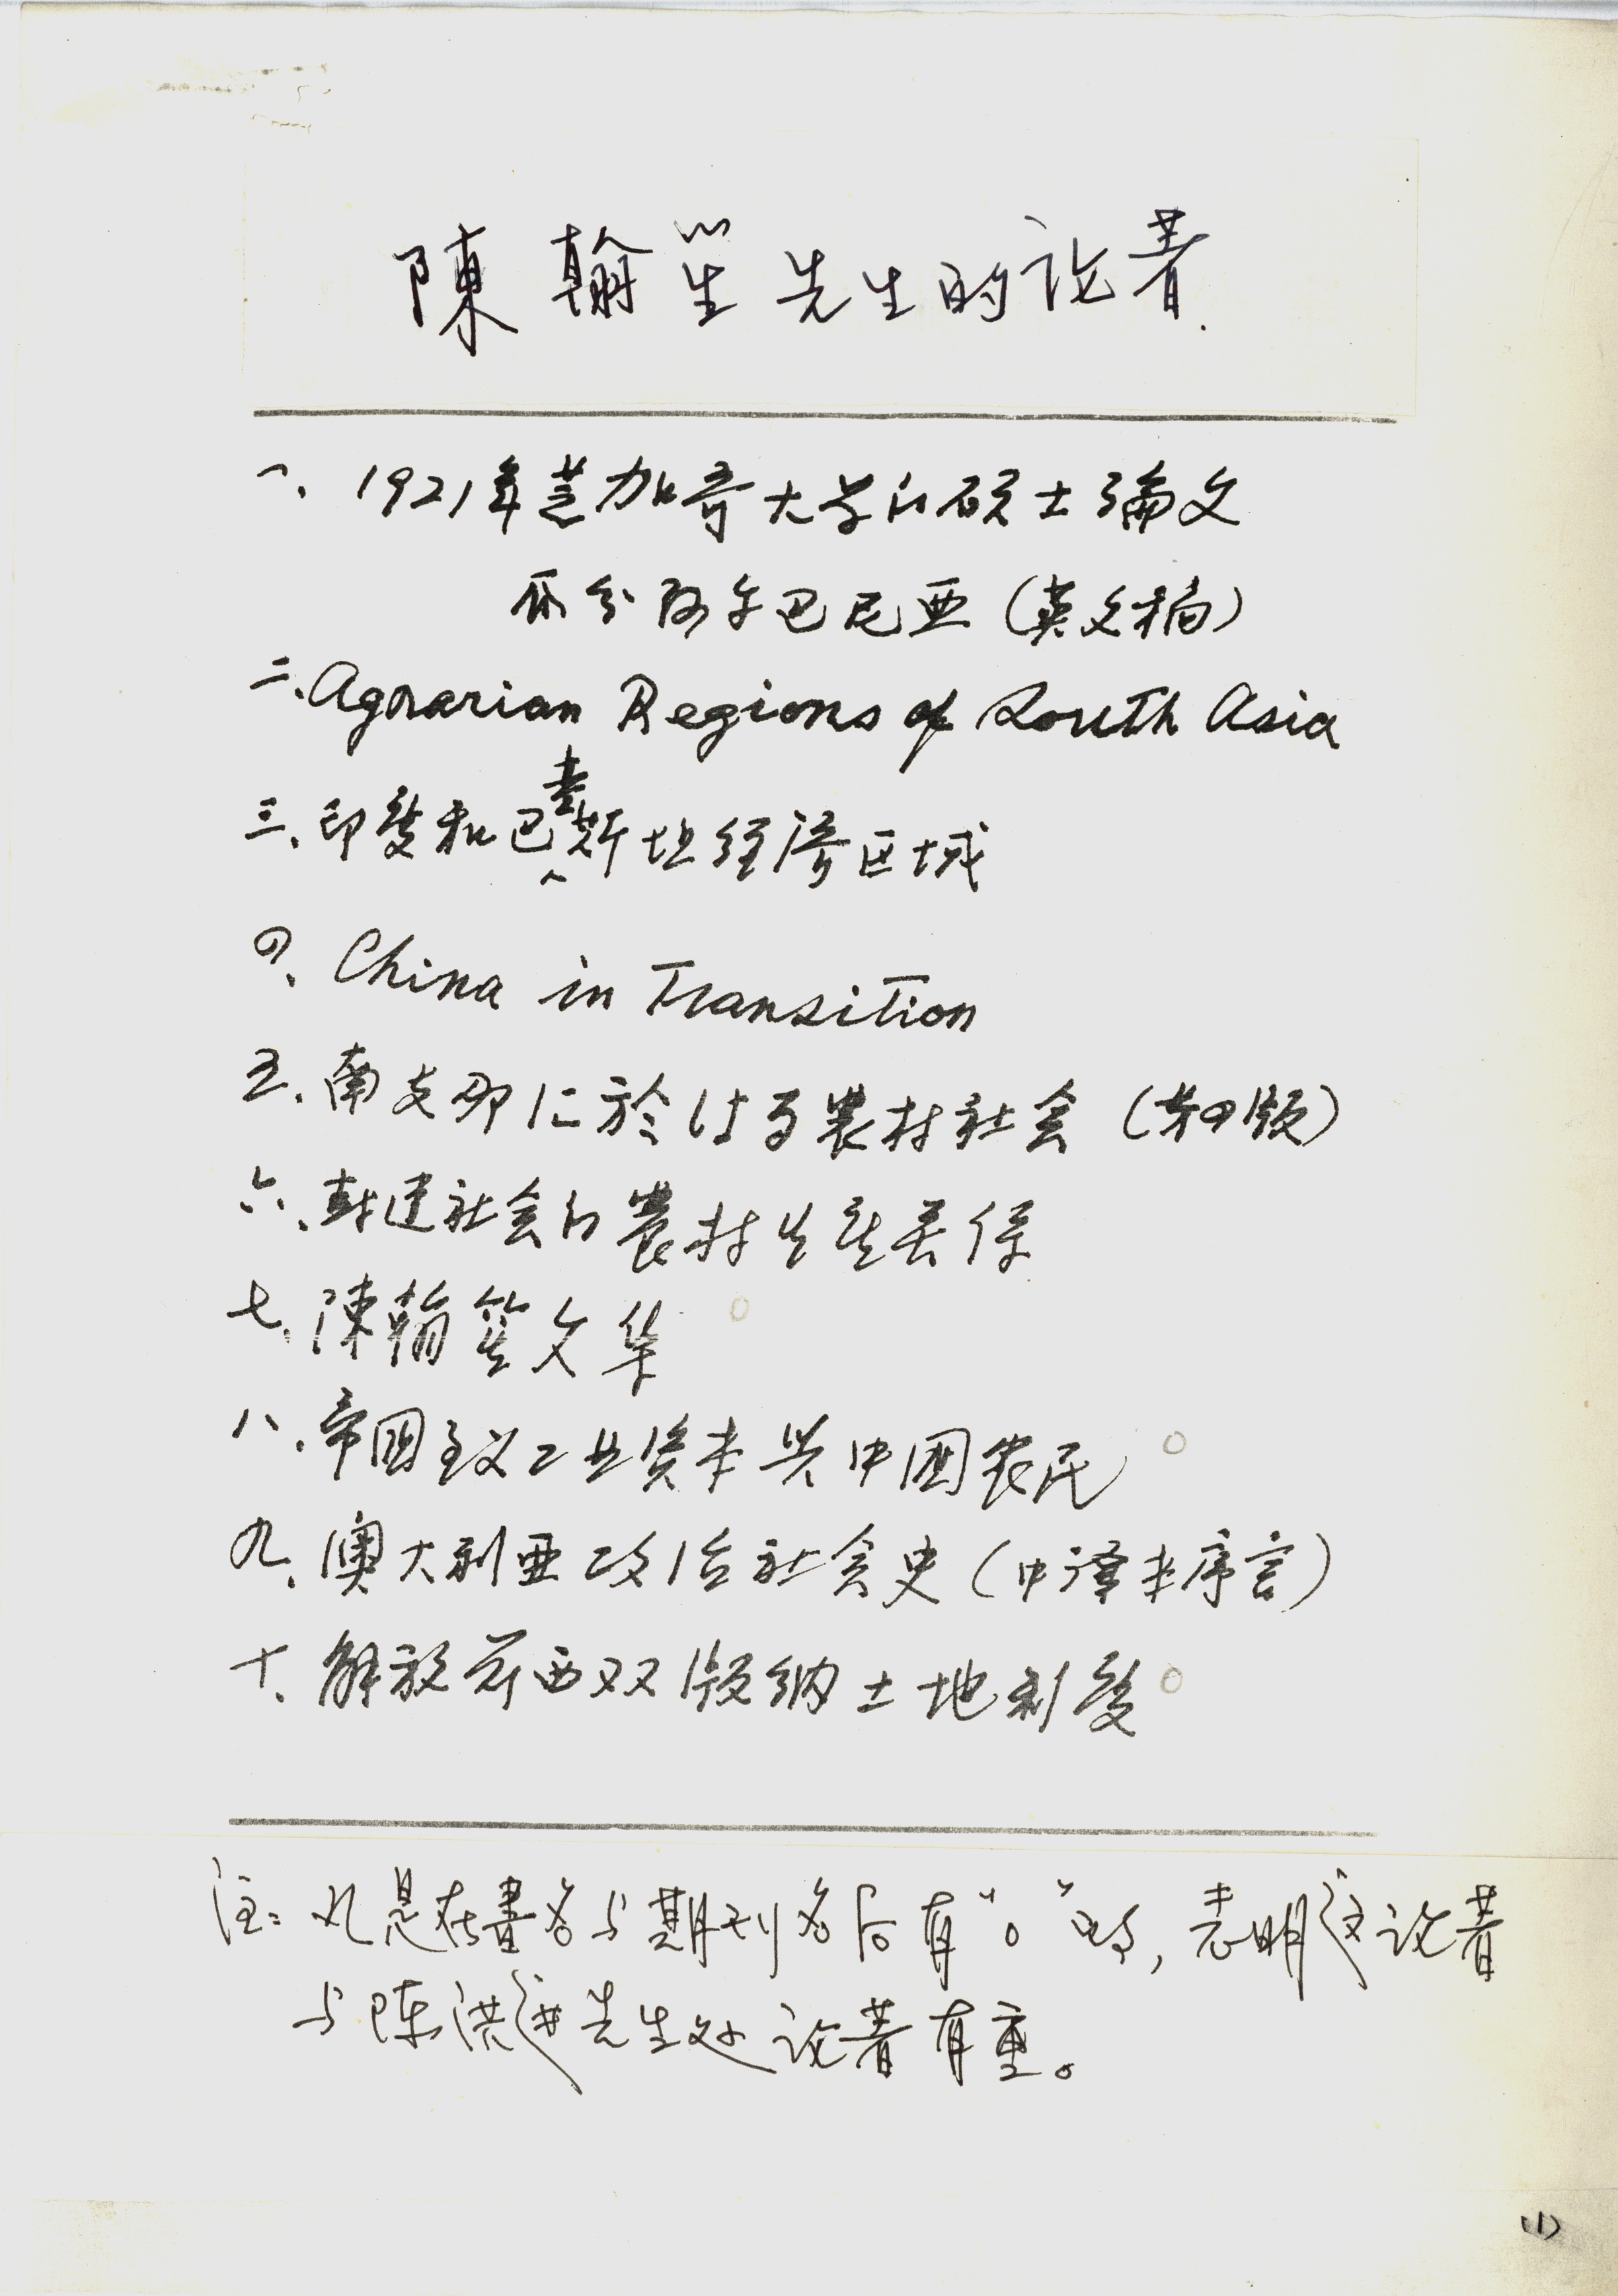 陳翰笙先生的论著.
一、1921年芝加哥大学的硕士論文
瓜分阿尔巴尼亚(英文稿)
二、Agrarian Regions of South Asia
三、印度和巴基斯坦经济区域
四、China in Transition
五、南支那に於ける農村社会(第四版)
六、封建社会的農村生産关係
七、陳翰笙文集 〇
八、帝國主义工业资本与中國农民 〇
九、澳大利亚政治社会史(中译本序言)
十、解放前西双版纳土地制度 〇
注:凡是在書名与期刊名后有“〇”的,表明这论著
与陈洪进先生处论著有重。
(1)